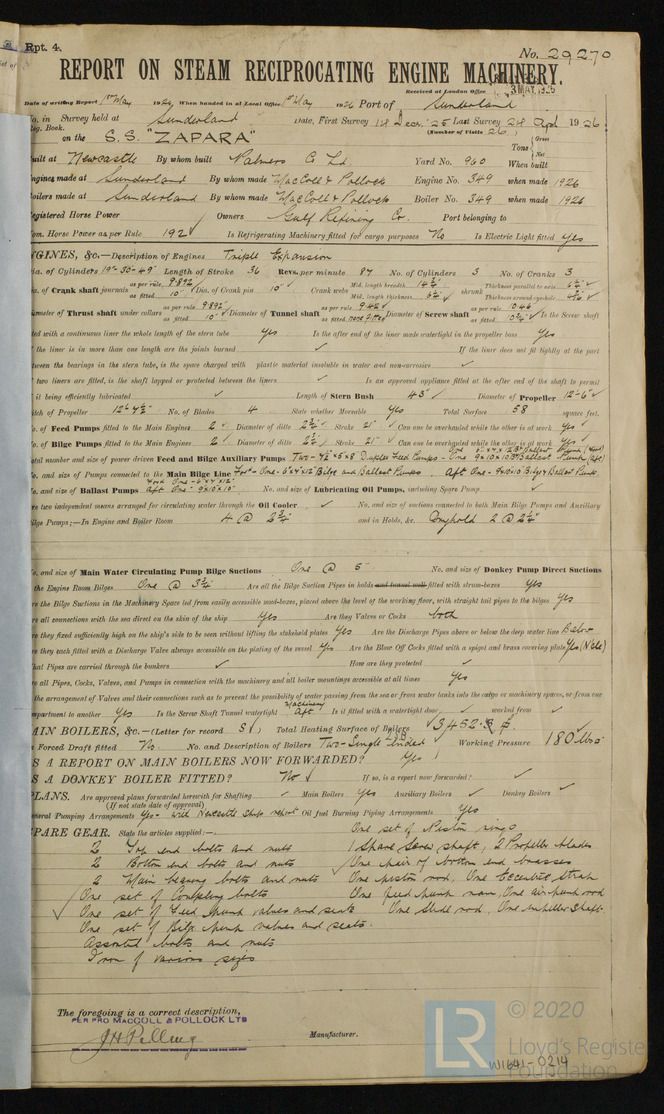 Rpt. 4.
No. 29270
REPORT ON STEAM RECIPROCATING ENGINE MACHINERY.
Received at London Office 3 MAY 1926
Date of writing Report 1st May 1926 When handed in at Local Office 1st May 1926 Port of Sunderland
No. in Survey held at Sunderland Date, First Survey 14 Dec. '25 Last Survey 24 Apl 1926
Reg. Book. (Number of Visits 26)
on the S.S. "ZAPARA" Tons Gross Net
built at Newcastle By whom built Palmers Co Ld Yard No. 960 When built
Engines made at Sunderland By whom made MacColl & Pollock Engine No. 349 when made 1926
Boilers made at Sunderland By whom made MacColl & Pollock Boiler No. 349 when made 1926
Registered Horse Power Owners Gulf Refining Co. Port belonging to
Nom. Horse Power as per Rule 192 Is Refrigerating Machinery fitted for cargo purposes No Is Electric Light fitted Yes
ENGINES, &c.—Description of Engines Triple Expansion
Dia. of Cylinders 19"-30-49" Length of Stroke 36 Revs. per minute 87 No. of Cylinders 3 No. of Cranks 3
Dia. of Crank shaft journals as per rule 9.892 as fitted 10" Dia. of Crank pin 10" Crank webs Mid. length breadth Mid. length thickness shrunk Thickness parallel to axis Thickness around eyehole
Diameter of Thrust shaft under collars as per rule 9.892 as fitted 10" Diameter of Tunnel shaft as per rule 9.42 as fitted none fitted Diameter of Screw shaft as per rule 10.46 as fitted 10¾" Is the Screw shaft
fitted with a continuous liner the whole length of the stern tube Yes Is the after end of the liner made watertight in the propeller boss Yes
If the liner is in more than one length are the joints burned If the liner does not fit tightly at the part
between the bearings in the stern tube, is the space charged with plastic material insoluble in water and non-corrosive
If two liners are fitted, is the shaft lapped or protected between the liners Is an approved appliance fitted at the after end of the shaft to permit
it being efficiently lubricated Length of Stern Bush 43" Diameter of Propeller 12'-6"
Pitch of Propeller No. of Blades 4 State whether Moveable Yes Total Surface 58 square feet.
No. of Feed Pumps fitted to the Main Engines 2 Diameter of ditto 2¾" Stroke 21" Can one be overhauled while the other is at work Yes
No. of Bilge Pumps fitted to the Main Engines 2 Diameter of ditto Stroke 21" Can one be overhauled while the other is at work Yes
Total number and size of power driven Feed and Bilge Auxiliary Pumps Two - Duplex Feed Pumps - One 6"x4"x12" Bt Ballast Pump (Ford) One 9x10x10 Bt Ballast Pump (Aft)
No. and size of Pumps connected to the Main Bilge Line Ford - One - 6"x4"x12" Bilge and Ballast Pumps. Aft One - 9x10x10" Bilge & Ballast Pumps
No. and size of Ballast Pumps Ford One - 6"x4"x12" Aft One - 9"x10"x10" No. and size of Lubricating Oil Pumps, including Spare Pump
Are two independent means arranged for circulating water through the Oil Cooler No. and size of suctions connected to both Main Bilge Pumps and Auxiliary
Bilge Pumps;—In Engine and Boiler Room 4 @ 2¾" and in Holds, &c.
No. and size of Main Water Circulating Pump Bilge Suctions One @ 5" No. and size of Donkey Pump Direct Suctions
to the Engine Room Bilges One @ 3¾" Are all the Bilge Suction Pipes in holds and tunnel well fitted with strum-boxes Yes
Are the Bilge Suctions in the Machinery Space led from easily accessible mud-boxes, placed above the level of the working floor, with straight tail pipes to the bilges Yes
Are all connections with the sea direct on the skin of the ship Yes Are they Valves or Cocks both
Are they fixed sufficiently high on the ship's side to be seen without lifting the stokehold plates Yes Are the Discharge Pipes above or below the deep water line Below
Are they each fitted with a Discharge Valve always accessible on the plating of the vessel Yes Are the Blow Off Cocks fitted with a spigot and brass covering plate Yes
What Pipes are carried through the bunkers How are they protected
Are all Pipes, Cocks, Valves, and Pumps in connection with the machinery and all boiler mountings accessible at all times Yes
Is the arrangement of Valves and their connections such as to prevent the possibility of water passing from the sea or from water tanks into the cargo or machinery spaces, or from one
compartment to another Yes Is the Screw Shaft Tunnel watertight Machinery Aft Is it fitted with a watertight door worked from
MAIN BOILERS, &c.—(Letter for record S) Total Heating Surface of Boilers 3452
Is Forced Draft fitted No. No. and Description of Boilers Two - Single Ended Working Pressure 180 lbs
IS A REPORT ON MAIN BOILERS NOW FORWARDED? Yes
IS A DONKEY BOILER FITTED? No If so, is a report now forwarded?
PLANS. Are approved plans forwarded herewith for Shafting Main Boilers Yes Auxiliary Boilers Donkey Boilers
(If not state date of approval)
General Pumping Arrangements Yes - with Newcastle Ship report Oil fuel Burning Piping Arrangements Yes
SPARE GEAR. State the articles supplied:— One set of Piston rings
2 Top end bolts and nuts 1 Spare Screw shaft, 2 Propeller blades
2 Bottom end bolts and nuts One pair of bottom end brasses
2 Main bearing bolts and nuts One piston rod, One Eccentric Strap
One set of Coupling bolts One feed pump ram, One air pump rod
One set of Feed pump valves and seats One Slide rod, One impeller Shaft
One set of Bilge pump valves and seats.
Assorted bolts and nuts
Iron of various sizes
The foregoing is a correct description,
PER PRO MACCOLL & POLLOCK LTD
Manufacturer.
© 2020
LR
Lloyd's Register
Foundation
W1641-0214